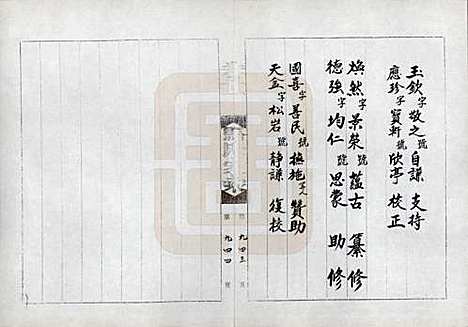 玉欽字敬之號自謙 支持
應珍字寶軒號欣亭 校正
煥然字景榮號蘊古 纂修
德強字均仁號思蒙 助修
國喜字善民號 贊助
天益字松岩號靜謙 復校
九四三
九四四